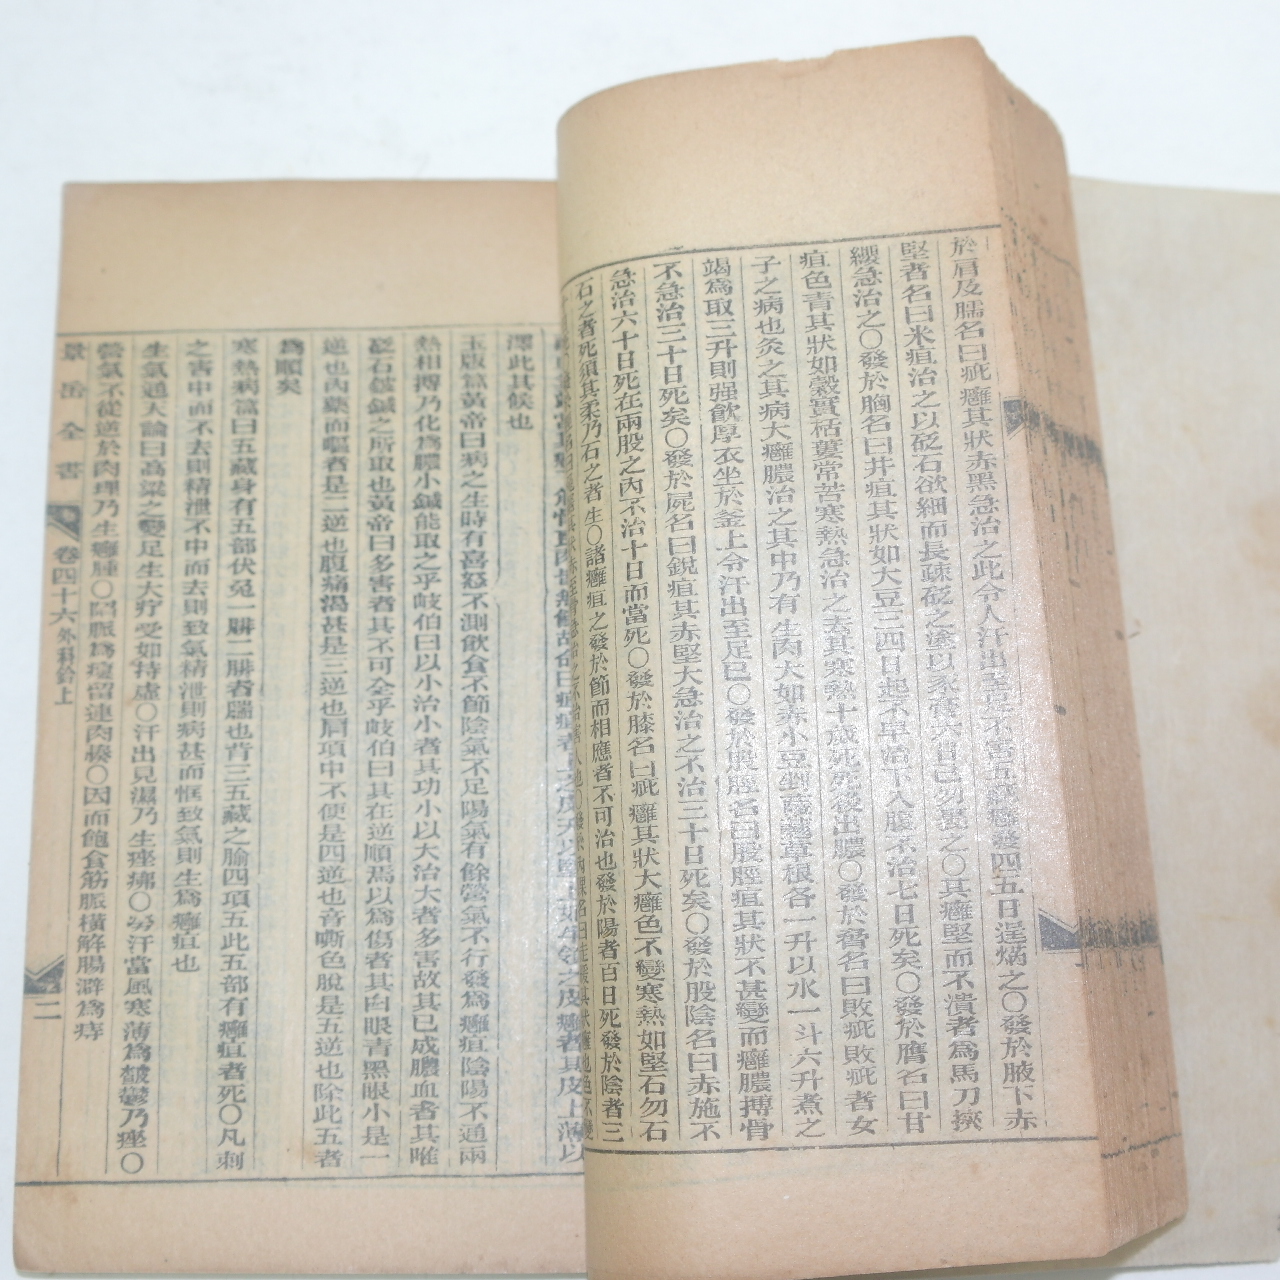 於肩及臑名曰疵癰其狀赤黑急治之此令人汗出至足不害五藏癰發四五日逞焫之〇發於腋下赤
堅者名曰米疽治之以砭石欲細而長疎砭之塗以豕膏六日已勿裹之〇其癰堅而不潰者爲馬刀挾
纓急治之〇發於胸名曰井疽其狀如大豆三四日起不早治下入腹不治七日死矣〇發於膺名曰甘
疽色青其狀如穀實栝蔞常苦寒熱急治之去其寒熱十歲死死後出膿〇發於脅名曰敗疵敗疵者女
子之病也灸之其病大癰膿治之其中乃有生肉大如赤小豆剉䔖翹草根各一升以水一斗六升煮之
竭爲取三升則强飲厚衣坐於釜上令汗出至足已〇發於股脛名曰股脛疽其狀不甚變而癰膿搏骨
不急治三十日死矣〇發於尻名曰銳疽其赤堅大急治之不治三十日死矣〇發於股陰名曰赤施不
急治六十日死在兩股之內不治十日而當死〇發於膝名曰疵癰其狀大癰色不變寒熱如堅石勿石
石之者死須其柔乃石之者生〇諸癰疽之發於節而相應者不可治也發於陽者百日死發於陰者三
澤此其候也
玉版篇黃帝曰病之生時有喜怒不測飲食不節陰氣不足陽氣有餘營氣不行發爲癰疽陰陽不通兩
熱相搏乃化爲膿小鍼能取之乎岐伯曰以小治小者其功小以大治大者多害故其已成膿血者其唯
砭石鈹鍼之所取也黃帝曰多害者其不可全乎岐伯曰其在逆順焉以爲傷者其白眼青黑眼小是一
逆也內藥而嘔者是二逆也腹痛渴甚是三逆也肩項中不便是四逆也音嘶色脫是五逆也除此五者
爲順矣
寒熱病篇曰五藏身有五部伏兔一腓二腓者腨也背三五藏之腧四項五此五部有癰疽者死〇凡刺
之害中而不去則精泄不中而去則致氣精泄則病甚而恇致氣則生爲癰疽也
生氣通天論曰高粱之變足生大疔受如持虛〇汗出見濕乃生痤疿〇勞汗當風寒薄爲皶鬱乃痤〇
營氣不從逆於肉理乃生癰腫〇陷脈爲瘻留連肉腠〇因而飽食筋脈橫解腸澼爲痔
景岳全書
卷四十六外科鈐上
二